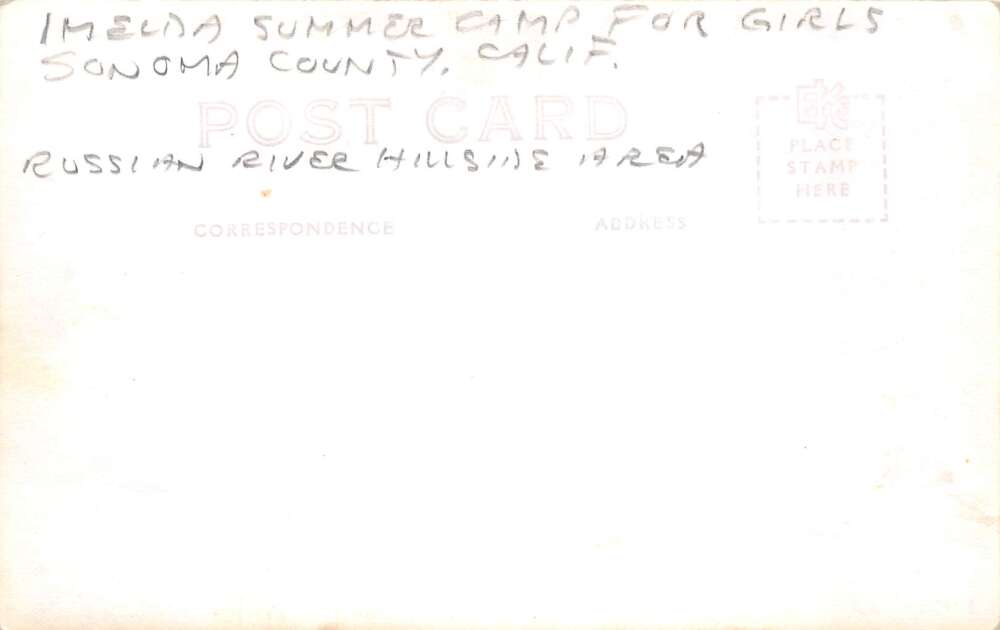 IMELDA SUMMER CAMP FOR GIRLS
SONOMA COUNTY, CALIF.
POST CARD
EKC
PLACE
STAMP
HERE
RUSSIAN RIVER HILLSIDE AREA
CORRESPONDENCE
ADDRESS